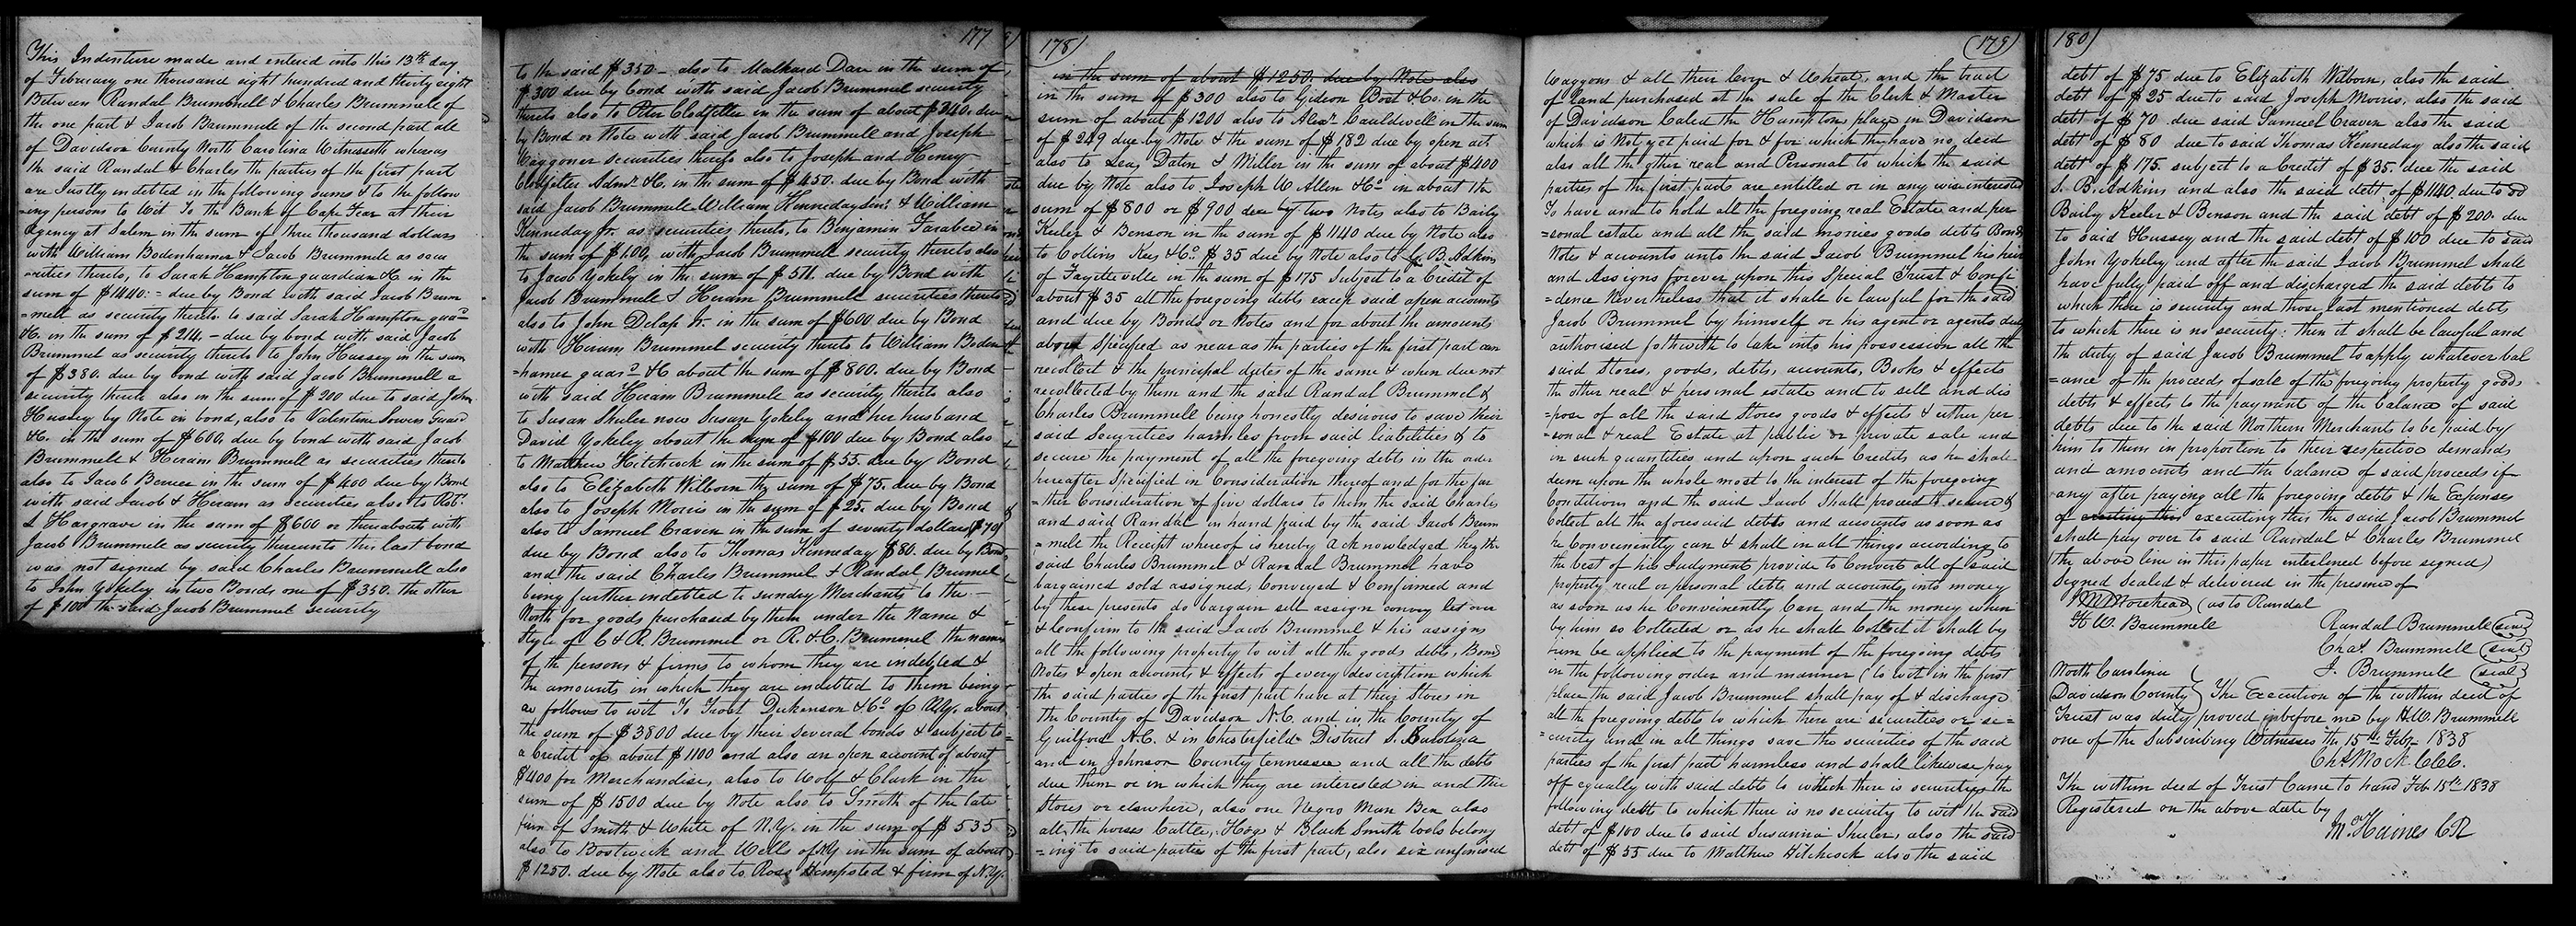 This Indenture made and entered into this 13th day
of February one thousand eight hundred and thirty eight
Between Randal Brummell & Charles Brummell of
the one part & Jacob Brummell of the second part all
of Davidson County North Carolina Witnesseth whereas
the said Randal & Charles the parties of the first part
are Justly indebted in the following sums & to the follow
=ing persons to Wit To the Bank of Cape Fear at their
Agency at Salem in the sum of three thousand dollars
with William Bodenhamer & Jacob Brummell as secu
=rities thereto, to Sarah Hampton guardian &C. in the
sum of $1440.= due by Bond with said Jacob Brum
=mell as security thereto to said Sarah Hampton guar.
&C. in the sum of $214.– due by bond with said Jacob
Brummel as security thereto to John Hussey in the sum
of $380. due by bond with said Jacob Brummell a
security thereto also in the sum of $200 due to said John
Hussey by Note in bond, also to Valentine Sowers Guard
&C. in the sum of $600, due by bond with said Jacob
Brummell & Hiram Brummell as securities thereto
also to Jacob Berrier in the sum of $400 due by Bond
with said Jacob & Hiram as securities also to Robt.
L Hargrave in the sum of $600 or thereabouts with
Jacob Brummell as security thereunto this last bond
was not signed by said Charles Brummell also
to John Yokeley in two Bonds one of $350. the other
of $100 the said Jacob Brummel security
177
to the said $350 – also to Malhard Darr in the sum of
$300 due by bond with said Jacob Brummel security
thereto also to Peter Clodfelter in the sum of about $240. due
by Bond or Note with said Jacob Brummell and Joseph
Waggoner securities thereto also to Joseph and Henry
Clodfelter Admr. &C. in the sum of $450. due by Bond with
said Jacob Brummell William Kenneday Senr. & William
Kenneday Jr. as securities thereto, to Benjamin Farabee in
the sum of $100, with Jacob Brummell security thereto also
to Jacob Yokeley in the sum of $511. due by Bond with
Jacob Brummell & Hiram Brummell securities thereto
also to John Delap Jr. in the sum of $600 due by Bond
with Hiram Brummel security thereto to William Boden
=hamer guar. &C about the sum of $800. due by Bond
with said Hiram Brummell as security thereto also
to Susan Shuler now Susan Yokeley and her husband
David Yokeley about the sum of $100 due by Bond also
to Matthew Hitchcock in the sum of $55. due by Bond
also to Elizabeth Wilborn the sum of $75. due by Bond
also to Joseph Morris in the sum of $25. due by Bond
also to Samuel Craven in the sum of seventy dollars ($70)
due by Bond also to Thomas Kenneday $80. due by Bond
and the said Charles Brummel & Randal Brummel
being further indebted to sundry Merchants to the –
North for goods purchased by them under the Name &
Style of C & R. Brummel or R. & C. Brummel the names
of the persons & firms to whom they are indebted &
the amounts in which they are indebted to them being
as follows to wit To Trost Dickenson & Co. of N.Y. about
the sum of $3800 due by their several bonds & subject to
a Credit of about $1100 and also an open account of about
$400 for Merchandise, also to Wolf & Clark in the
sum of $1500 due by Note also to Smith of the late
firm of Smith & White of N.Y. in the sum of $535
also to Bostwick and Wells of NY in the sum of about
$1250. due by Note also to Ross Hempsted & firm of N.Y.
178)
in the sum of about $1250. due by Note also
in the sum of $300 also to Gideon Bost & Co. in the
sum of about $1200 also to Alexr. Cauldwell in the sum
of $249 due by Note & the sum of $182 due by open act
also to Lea, Daton & Miller in the sum of about $400
due by Note also to Joseph W Allen & Co. in about the
sum of $800 or $900 due by two Notes also to Baily
Keeler & Benson in the sum of $1140 due by Note also
to Collins Keys & Co. $35 due by Note also to B. Adkins
of Fayetteville in the sum of $175 Subject to a Credit of
about $35 all the foregoing debts except said open accounts
and due by Bonds or Notes and for about the amounts
above Specified as near as the parties of the first part can
recollect & the principal dates of the same & when due not
recollected by them and the said Randal Brummel &
Charles Brummell being honestly desirous to save their
said Securities harmless from said liabilities & to
secure the payment of all the foregoing debts in the order
hereafter Specified in Consideration thereof and for the fur
=ther Consideration of five dollars to them the said Charles
and said Randal in hand paid by the said Jacob Brum
=mell the Receipt whereof is hereby acknowledged they the
said Charles Brummel & Randal Brummel have
bargained sold assigned, Conveyed & Confirmed and
by these presents do bargain sell assign convey let over
& Confirm to the said Jacob Brummel & his assigns
all the following property to wit all the goods debts, Bonds
Notes & open accounts & effects of every description which
the said parties of the first part have at their Stores in
the County of Davidson N.C. and in the County of
Guilford N.C. & in Chesterfield District S. Carolina
and in Johnson County Tennessee and all the debts
due them or in which they are interested in and this
Stores or elsewhere, also one Negro Man Ben also
all the horses Cattle, Hogs & Black Smith tools belong
=ing to said parties of the first part, also six unfinised
(179)
Waggons & all their Corn & Wheat, and the tract
of Land purchased at the sale of the Clerk & Master
of Davidson Called the Hampton place in Davidson
which is Not yet paid for & for which they have no deed
also all the other real and Personal to which the said
parties of the first parts are entitled or in any wise interested
To have and to hold all the foregoing real Estate and per
=sonal estate and all the said monies goods debts Bonds
Notes & accounts unto the said Jacob Brummel his heirs
and Assigns forever upon this Special Trust & Confi
=dence Nevertheless that it shall be lawful for the said
Jacob Brummel by himself or his agent or agents duly
authorised fothwith to take into his possession all the
said Stores, goods, debts, accounts, Books & effects
the other real & personal estate and to sell and dis
=pose of all the said Stores goods & effects & other per
=sonal & real Estate at public or private sale and
in such quantities and upon such Credits as he shall
deem upon the whole most to the interest of the foregoing
Conditions and the said Jacob Shall proceed to secure &
Collect all the aforesaid debts and accounts as soon as
he Conveniently can & shall in all things according to
the best of his Judgment provide to Convert all of said
property real or personal debts and accounts into money
as soon as he Conveniently Can and the money when
by him so Collected or as he shall Collect it shall by
him be applied to the payment of the foregoing debts
in the following order and manner (to wit in the first
place the said Jacob Brummel shall pay of & discharge
all the foregoing debts to which there are securities or se=
=curity and in all things save the securities of the said
parties of the first part harmless and shall likewise pay
off equally with said debts to which there is securities the
following debts to which there is no security to wit the said
debt of $100 due to said Susanna Shuler, also the said
debt of $55 due to Matthew Hitchcock also the said
180)
debt of $75 due to Elizabeth Wilborn, also the said
debt of $25 due to said Joseph Morris, also the said
debt of $70 due said Samuel Craven also the said
debt of $80 due to said Thomas Kenneday also the said
debt of $175. subject to a Credit of $35. due the said
B. Adkins and also the said debt of $1140 due to sd
Baily Keeler & Benson and the said debt of $200. due
to said Hussey and the said debt of $100 due to said
John Yokeley and after the said Jacob Brummel shall
have fully paid off and discharged the said debts to
which there is security and those last mentioned debts
to which there is no security: then it shall be lawful and
the duty of said Jacob Brummel to apply whatever bal
=ance of the proceeds of sale of the foregoing property goods
debts & effects to the payment of the balance of said
debts due to the said Northern Merchants to be paid by
him to them in proportion to their respective demands
and amounts and the balance of said proceeds if
any after paying all the foregoing debts & the Expenses
of executing this the said Jacob Brummel
shall pay over to said Randal & Charles Brummel
(the above line in this paper interlined before signed)
Signed Sealed & delivered in the presence of
J M Morehead (as to Randal
H W. Brummell Randal Brummell (seal)
Chas. Brummell (seal)
North Carolina ( J. Brummell (seal)
Davidson County ) The Execution of the within deed of
Trust was duly proved before me by H.W. Brummell
one of the Subscribing Witnesses the 15th Feb. 1838
Chs Mock C.C.C.
The within deed of Trust Came to hand Feb 15th 1838
Registered on the above date by
M. Haines P.R